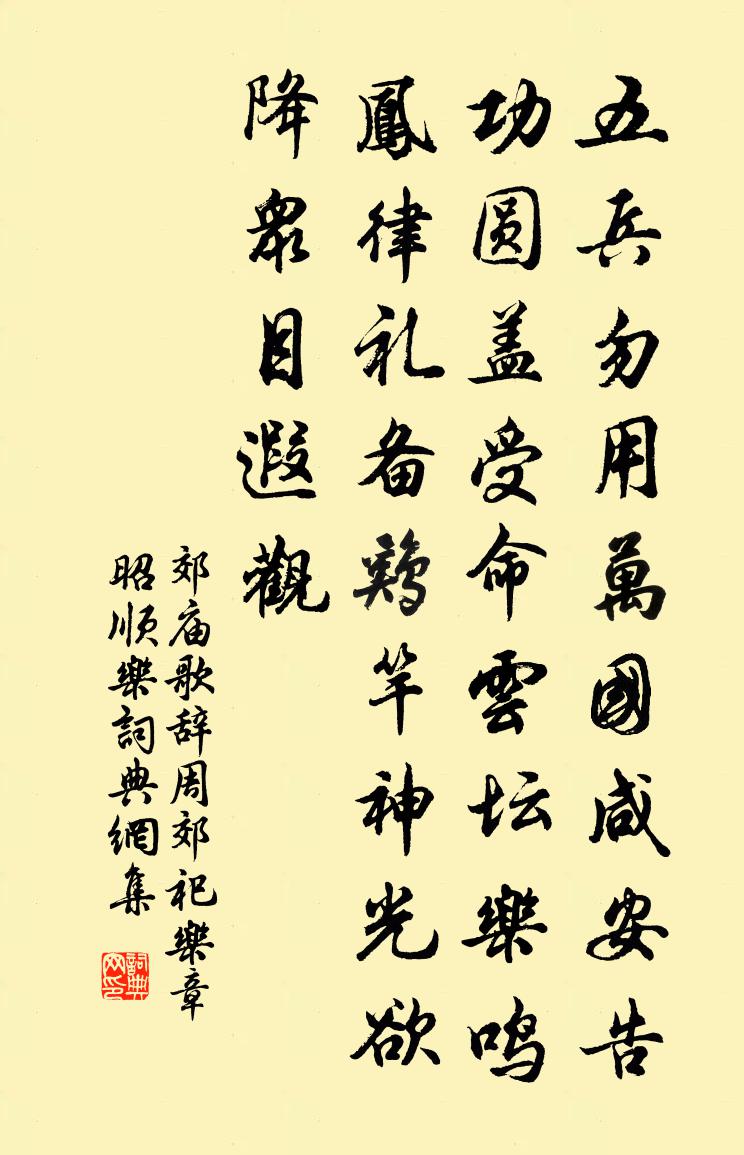 五兵勿用萬國咸安告
功圆盖受命雲坛樂鸣
鳳律礼备鷄竿神光欲
降眾目遐觀
郊庙歌辞周郊祀樂章
昭順樂詞典網集
詞典
网印